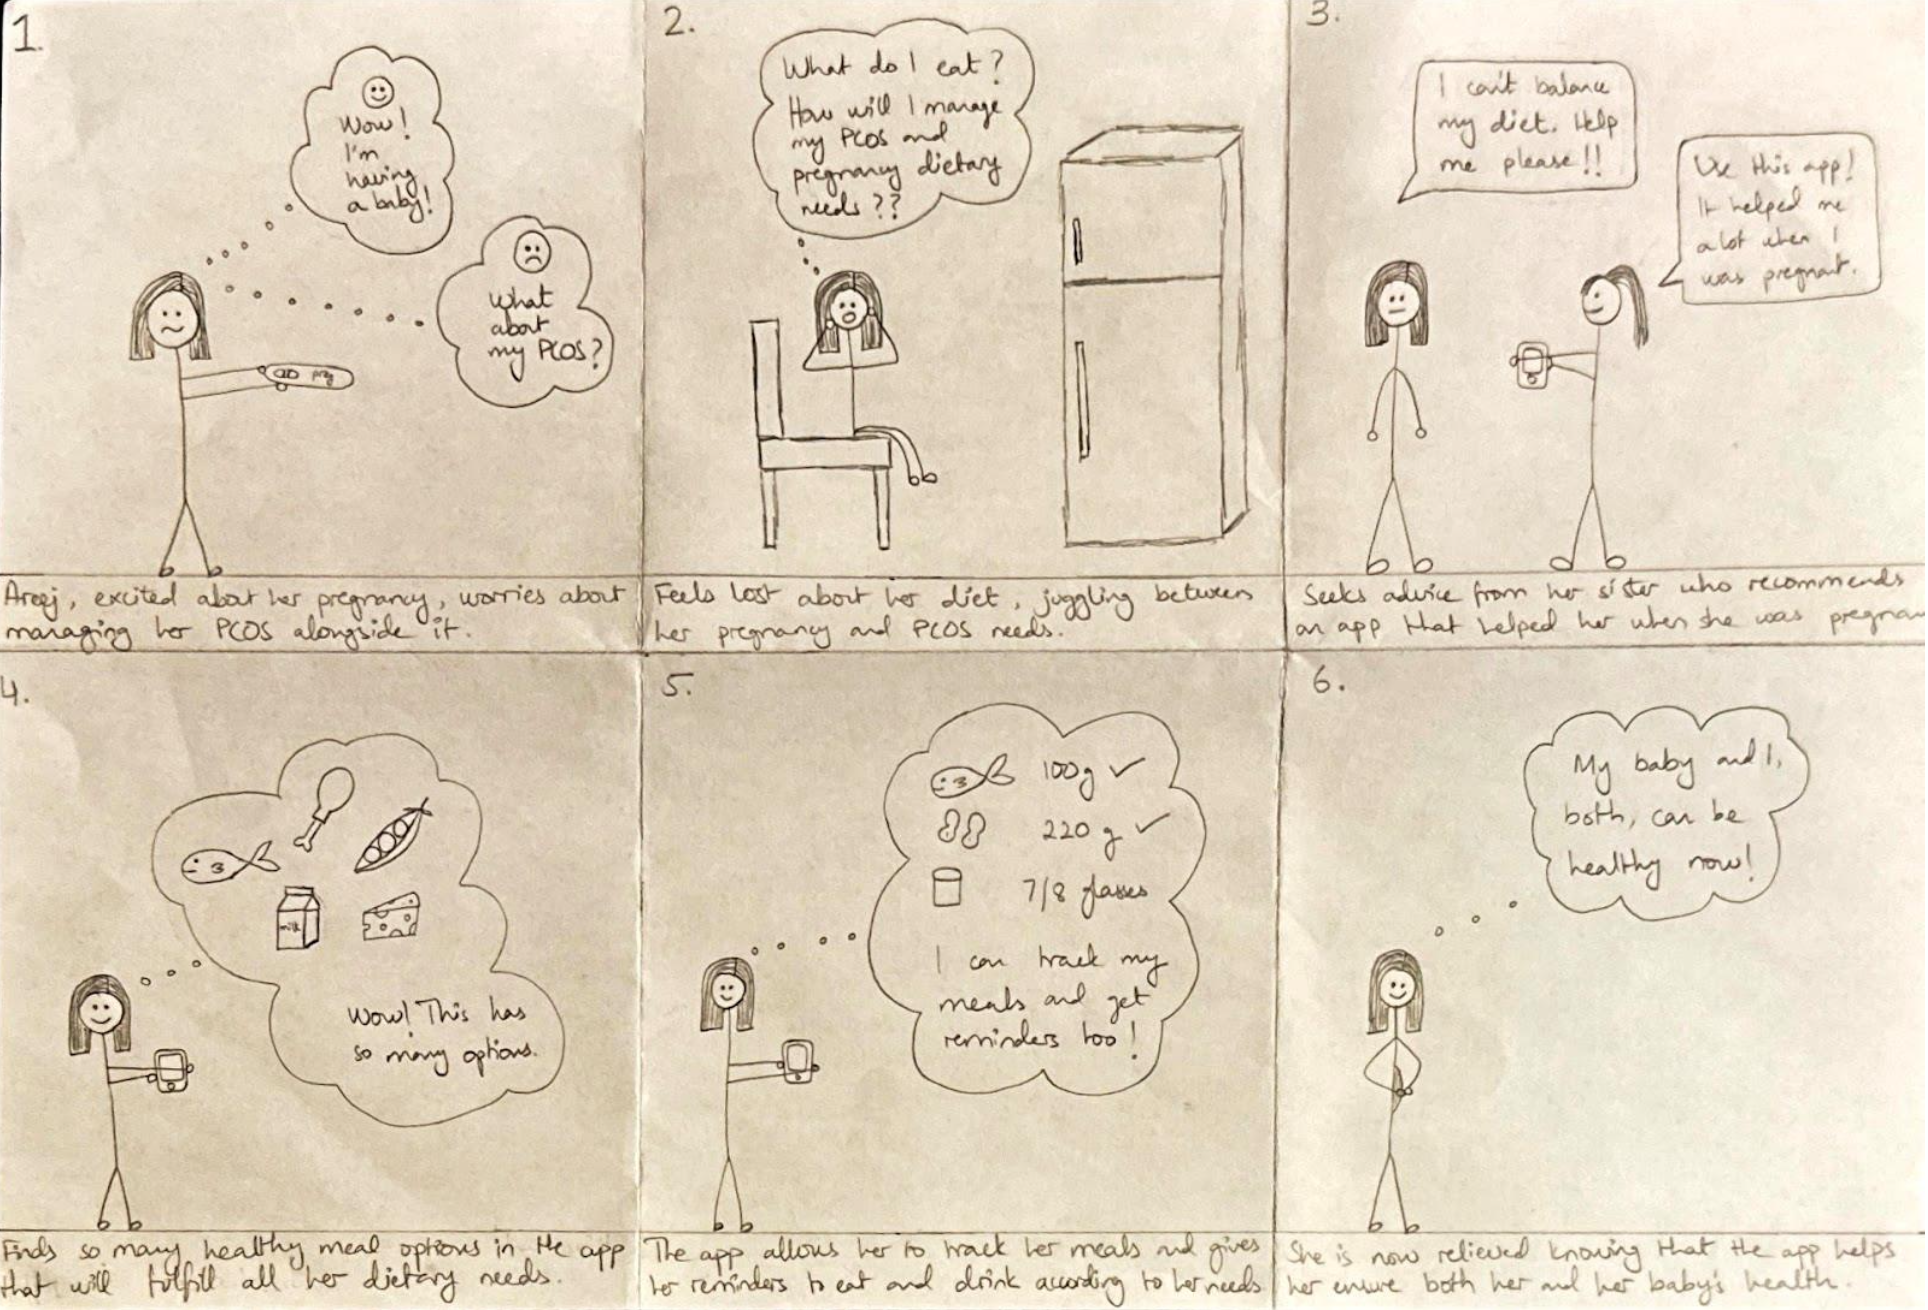 1.
Wow!
I'm
having
a baby!
What
about
my PCOS?
preg
Areej, excited about her pregnancy, worries about
managing her PCOS alongside it.
2.
What do I eat?
How will I manage
my PCOS and
pregnancy dietary
needs??
Feels lost about her diet, juggling between
her pregnancy and PCOS needs.
3.
I can't balance
my diet. Help
me please!!
Use this app!
It helped me
a lot when I
was pregnant.
Seeks advice from her sister who recommends
an app that helped her when she was pregnan
4.
milk
Wow! This has
so many options.
Finds so many healthy meal options in the app
that will fulfill all her dietary needs.
5.
100g ✓
220 g ✓
7/8 glasses
I can track my
meals and get
reminders too!
The app allows her to track her meals and gives
her reminders to eat and drink according to her needs
6.
My baby and I,
both, can be
healthy now!
She is now relieved knowing that the app helps
her ensure both her and her baby's health.